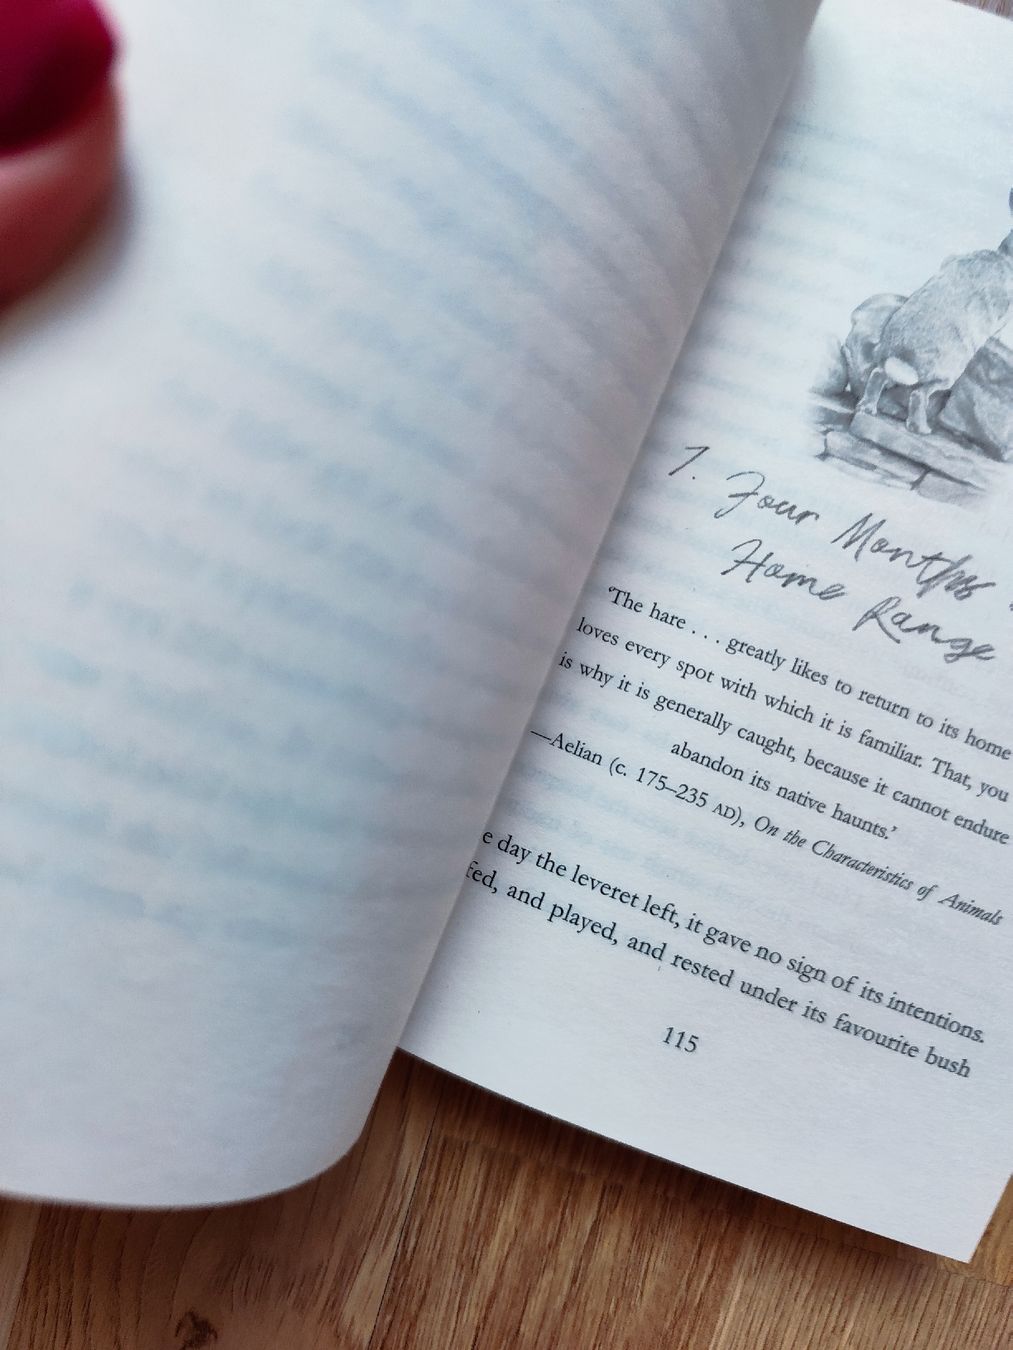 7. Four Months
Home Range
‘The hare . . . greatly likes to return to its home
loves every spot with which it is familiar. That, you
is why it is generally caught, because it cannot endure
abandon its native haunts.’
—Aelian (c. 175–235 AD), On the Characteristics of Animals
e day the leveret left, it gave no sign of its intentions.
fed, and played, and rested under its favourite bush
115